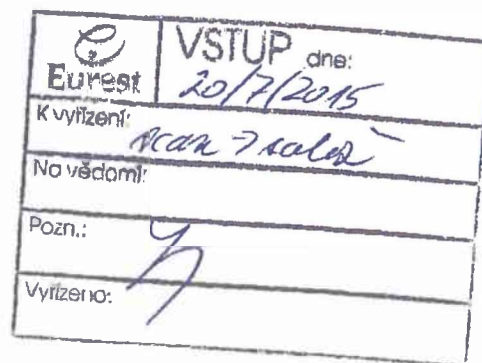 Eurest
VSTUP dne:
20/7/2015
K vyřízení:
scan →
Na vědomí:
Pozn.:
Vyřízeno: